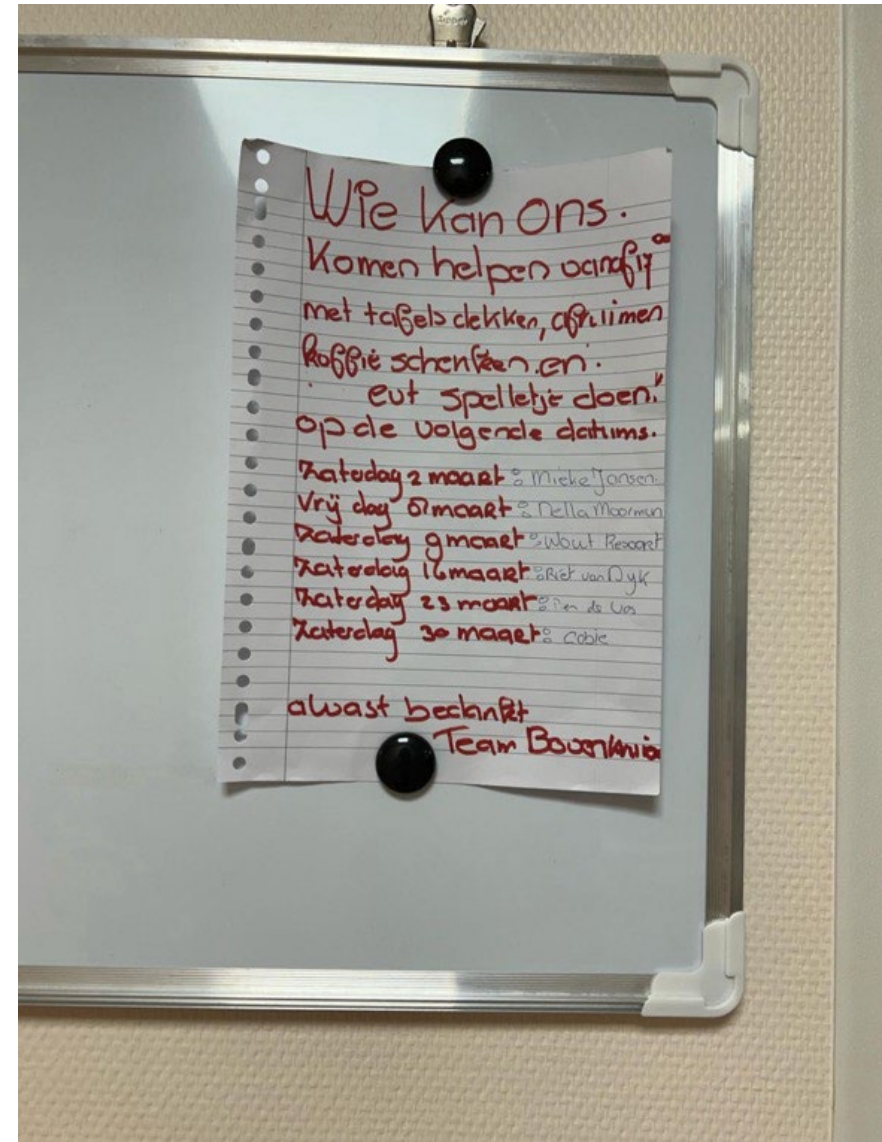 Wie kan ons.
Komen helpen vanaf 17°°
met tafels dekken, afruimen
koffie schenken. en.
eut spelletje doen."
op de volgende datums.
Zatedag 2 maart : Mieke Jansen
Vrij dag 01 maart : Nella Moorman
Zaterdag 9 maart : Wout
Zaterdag 16 maart : Riet van Dyk
Zaterdag 23 maart : de Vos
Zaterdag 30 maart : Cobie
alvast bedankt
Team